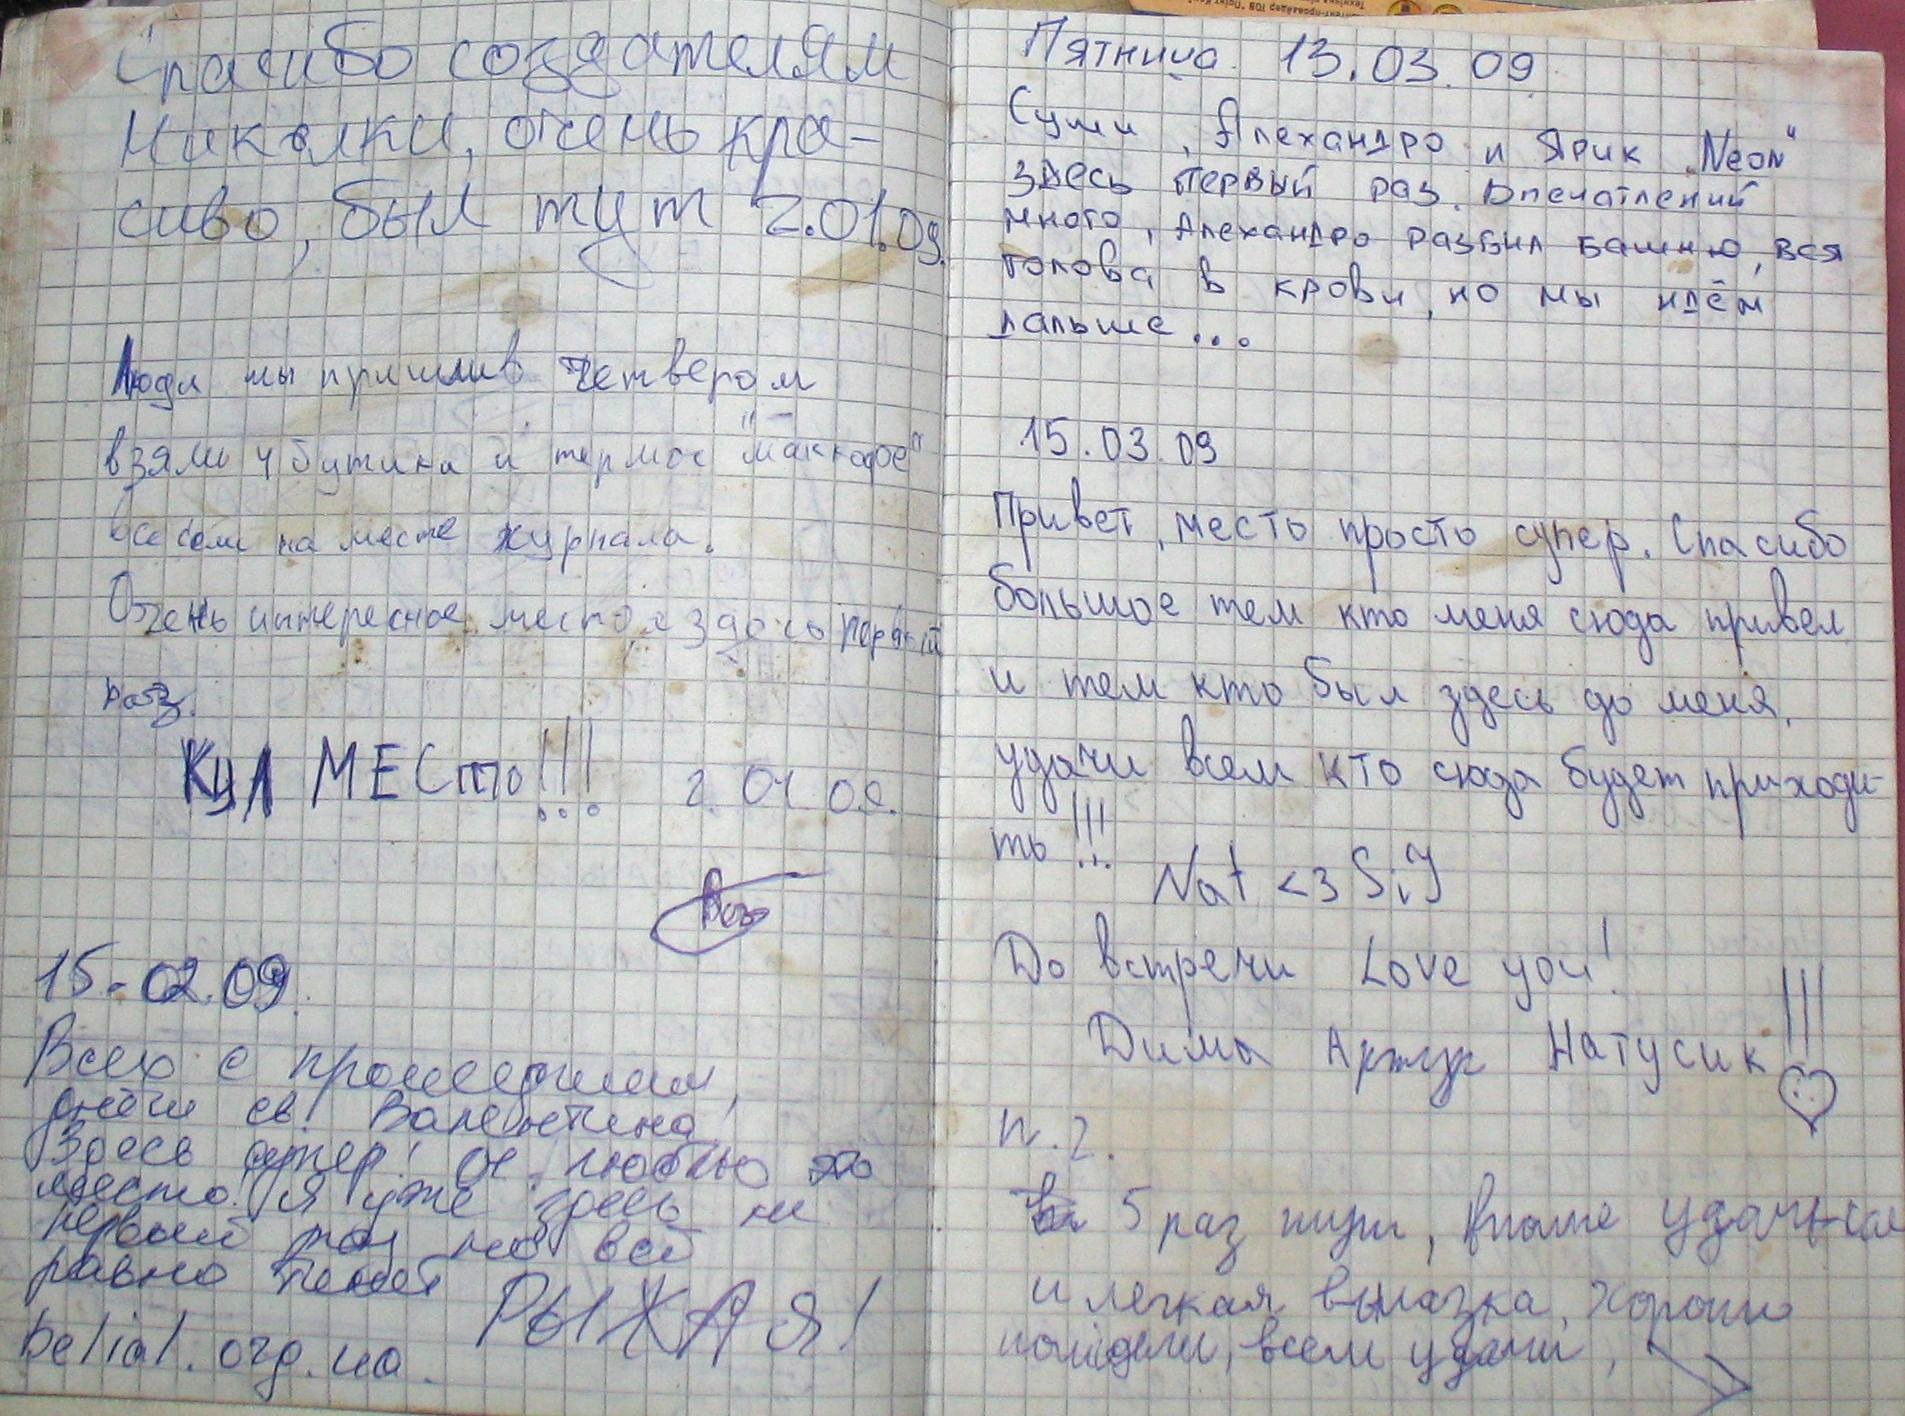 Спасибо создателям
Никалки, очень кра-
сиво, был тут 2.01.09.
Люди мы пришли в четвером
взяли 4 бутика и термос "маккофе"
все сели на месте журнала.
Очень интересное место я здесь первый
раз.
КУЛ МЕСто!!! 2.01.09.
15.02.09.
Всех с прошедшим,
днём св. Валентина!
Здесь супер! Оч. люблю это
место! Я уже здесь не
первый раз но всё
равно
РЫЖАЯ!
belial.org.ua.
Пятница 13.03.09
Суши, Алехандро и Ярик "Neon"
здесь первый раз. Впечатлений
много, Алехандро разбил башню, вся
голова в крови, но мы идём
дальше...
15.03.09
Привет, место просто супер. Спасибо
большое тем кто меня сюда привел
и тем кто был здесь до меня,
удачи всем кто сюда будет приходи-
ть!!!
Nat <3 SiJ
До встречи Love you!
Дима Артур Натусик!!!
5 раз тут, удачная
и легкая вылазка, хорошо
посидели, всем удачи,